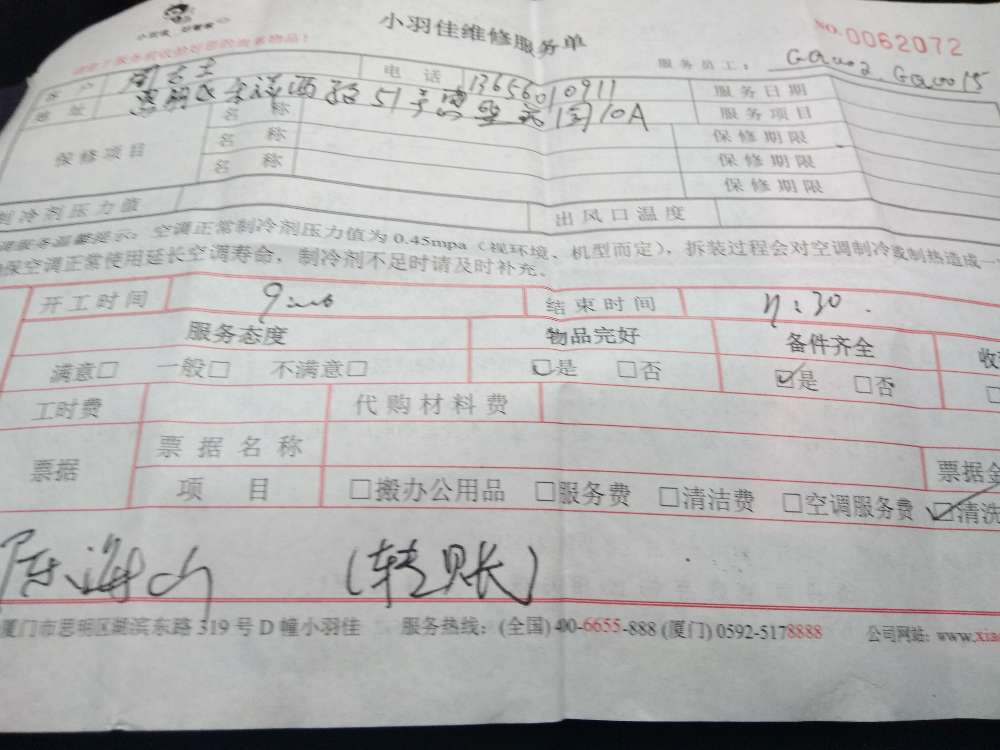 小羽佳维修服务单
NO. 0062072
服务员工：
客户 电话 13656010911 服务日期
地址 51号 10A 服务项目
保修项目 名称 保修期限
名称 保修期限
名称 保修期限
制冷剂压力值 出风口温度
空调正常制冷剂压力值为 0.45mpa（视环境、机型而定），拆装过程会对空调制冷或制热造成一
保空调正常使用延长空调寿命，制冷剂不足时请及时补充．
开工时间 结束时间 11:30
服务态度 物品完好 备件齐全
满意□ 一般□ 不满意□ ☑是 □否 ☑是 □否
工时费 代购材料费
票据 票据名称 票据金
项目 □搬办公用品 □服务费 □清洁费 □空调服务费 ☑清洗
(转账)
厦门市思明区湖滨东路 319 号 D 幢小羽佳 服务热线：(全国) 400-6655-888 (厦门) 0592-5178888 公司网站：www.xia